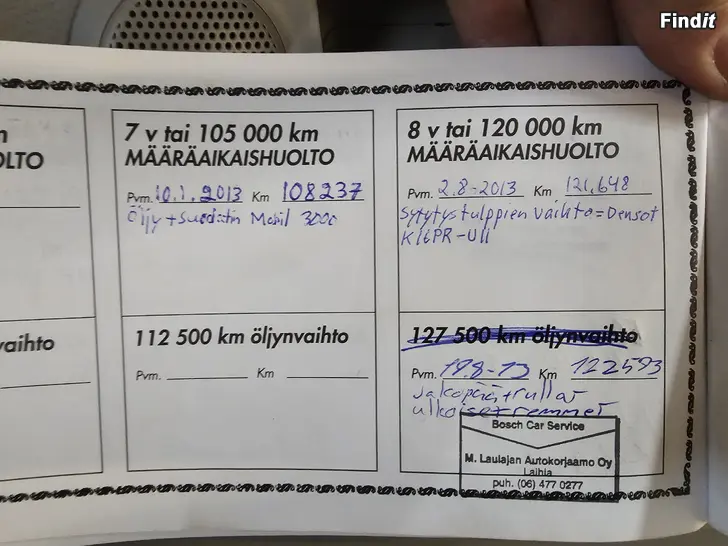 Findit
OLTO
vaihto
7 v tai 105 000 km
MÄÄRÄAIKAISHUOLTO
Pvm. 10.1.2013 Km 108237
Öljy + suodatin Mobil 3000
112 500 km öljynvaihto
Pvm. Km
8 v tai 120 000 km
MÄÄRÄAIKAISHUOLTO
Pvm. 2.8-2013 Km 121,648
Sytytystulppien vaihto = Densot
K16PR-U11
127 500 km öljynvaihto
Pvm. 19.8-13 Km 122593
Jakopää + rullat
ulkoiset remmet
Bosch Car Service
M. Laulajan Autokorjaamo Oy
Laihia
puh. (06) 477 0277